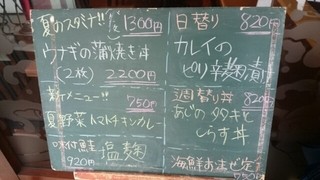 夏のスタミナ!!
1300円
ウナギの蒲焼き丼
(2枚) 2200円
新メニュー!! 750円
夏野菜トマトチキンカレー
味付鮭 塩麹
920円
日替り 820円
カレイの
ピリ辛麹漬
週替り丼 820円
あじのタタキと
しらす丼
海鮮お注ぎ定